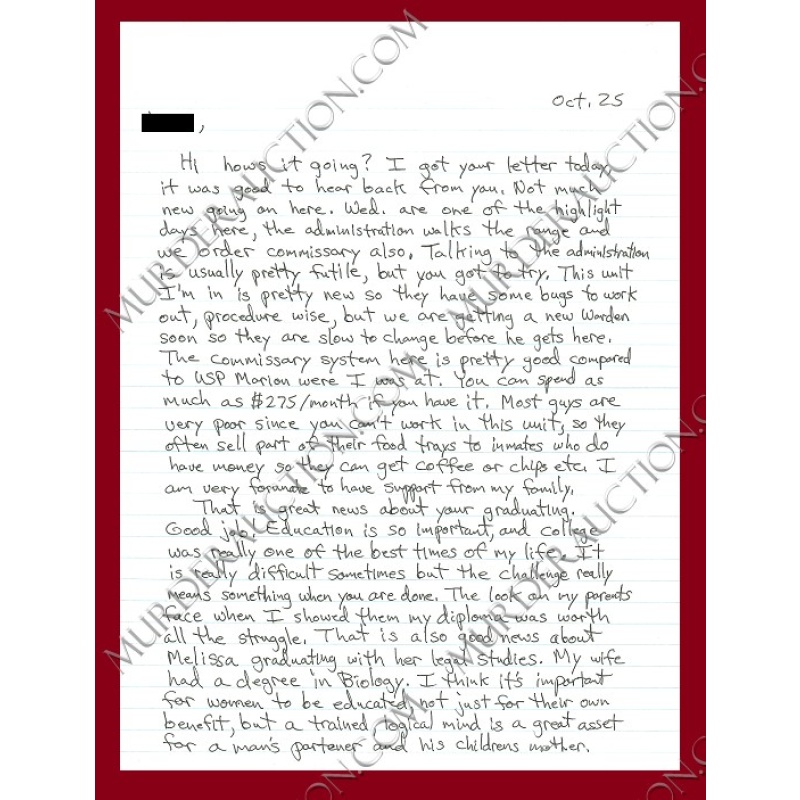 Oct. 25
,
Hi hows it going? I got your letter today,
it was good to hear back from you. Not much
new going on here. Wed. are one of the highlight
days here, the administration walks the range and
we order commissary also. Talking to the administration
is usually pretty futile, but you got to try. This unit
I'm in is pretty new so they have some bugs to work
out, procedure wise, but we are getting a new Warden
soon so they are slow to change before he gets here.
The commissary system here is pretty good compared
to USP Marion were I was at. You can spend as
much as $275/month if you have it. Most guys are
very poor since you can't work in this unit, so they
often sell part of their food trays to inmates who do
have money so they can get coffee or chips etc. I
am very forunate to have support from my family.
That is great news about your graduating.
Good job! Education is so important, and college
was really one of the best times of my life. It
is really difficult sometimes but the challenge really
means something when you are done. The look on my parents
face when I showed them my diploma was worth
all the struggle. That is also good news about
Melissa graduating with her legal studies. My wife
had a degree in Biology. I think it's important
for women to be educated not just for their own
benefit, but a trained logical mind is a great asset
for a man's partener and his childrens mother.
MURDERAUCTION.COM
MURDERAUCTION.COM
MURDERAUCTION.COM
MURDERAUCTION.COM